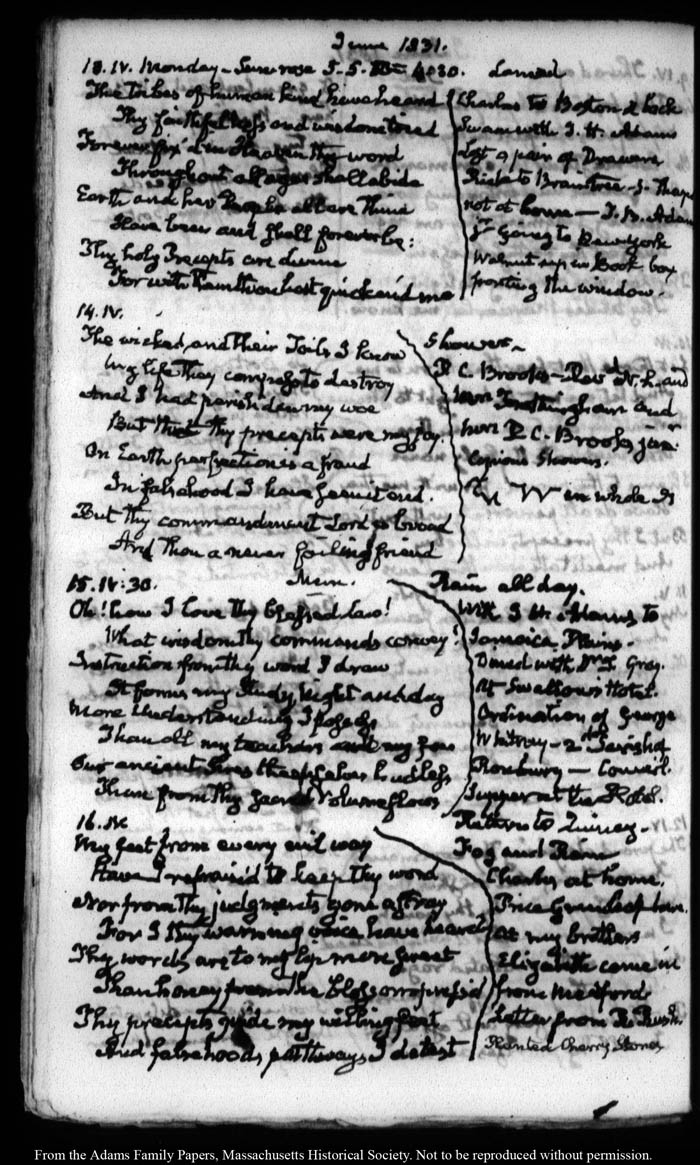 June 1831.
13. IV. Monday - Sun rose 4030. Lamed
The tribes of human kind have heard
Thy faithfulness and wisdom
Forever fix'd in Heaven thy word
Throughout all ages shall abide
Earth and her People all are Thine
Have been and shall forever be:
Thy holy Precepts are divine
For with them thou hast quicken'd me
Charles to Boston & back
Swam with I. H. Adams
Lost a pair of Drawers
Ride to Braintree - S. Thayer
not at home - T. B. Adams
Jr. going to New York
Walnut up in Book box
fronting the window.
14. IV.
The wicked, and their Toils I know
My life they to destroy
And I had perish'd in my woe
But that thy precepts were my joy.
On Earth perfection is a fraud
In falsehood I have found it end.
But thy commandment Lord is broad
And Thou a never failing friend
Showers
P. C. Brooks - Revd. N. L. and
Mrs Frothingham and
Mrs P. C. Brooks junr.
Copious Showers.
in whole 15
15. IV:30. Mem.
Oh! how I love thy blessed law!
What wisdom thy commands convey!
Instruction from thy word I draw
It forms my study night and day
More understanding I possess
Than all my teachers and my foes
Our ancient
Them from thy sacred Volume flows
Rain all day.
With I. H. Adams to
Jamaica Plains.
Dined with Gray.
At Swallow's Hotel.
Ordination of George
Whitney - 2d. Parish of
Roxbury - Council.
Supper at the Hotel.
Return to Quincy -
16. IV
My feet from every evil way
Have I refrain'd to keep thy word
Nor from thy judgments gone astray
For I thy warning voice have heard
Thy words are to my lip more sweet
Than honey from the blossom press'd
Thy precepts guide my willing feet
And falsehood's pathways I detest
Fog and Rain
Charles at home.
Price Greenleaf here.
At my brother's
Elizabeth came in
from Medford
Letter from R. Rush.
Planted Cherry Stones
From the Adams Family Papers, Massachusetts Historical Society. Not to be reproduced without permission.